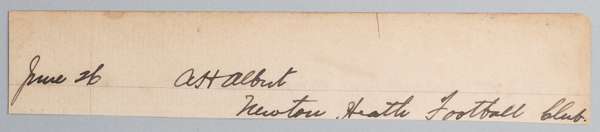 June 26 A H Albut
Newton Heath Football Club.